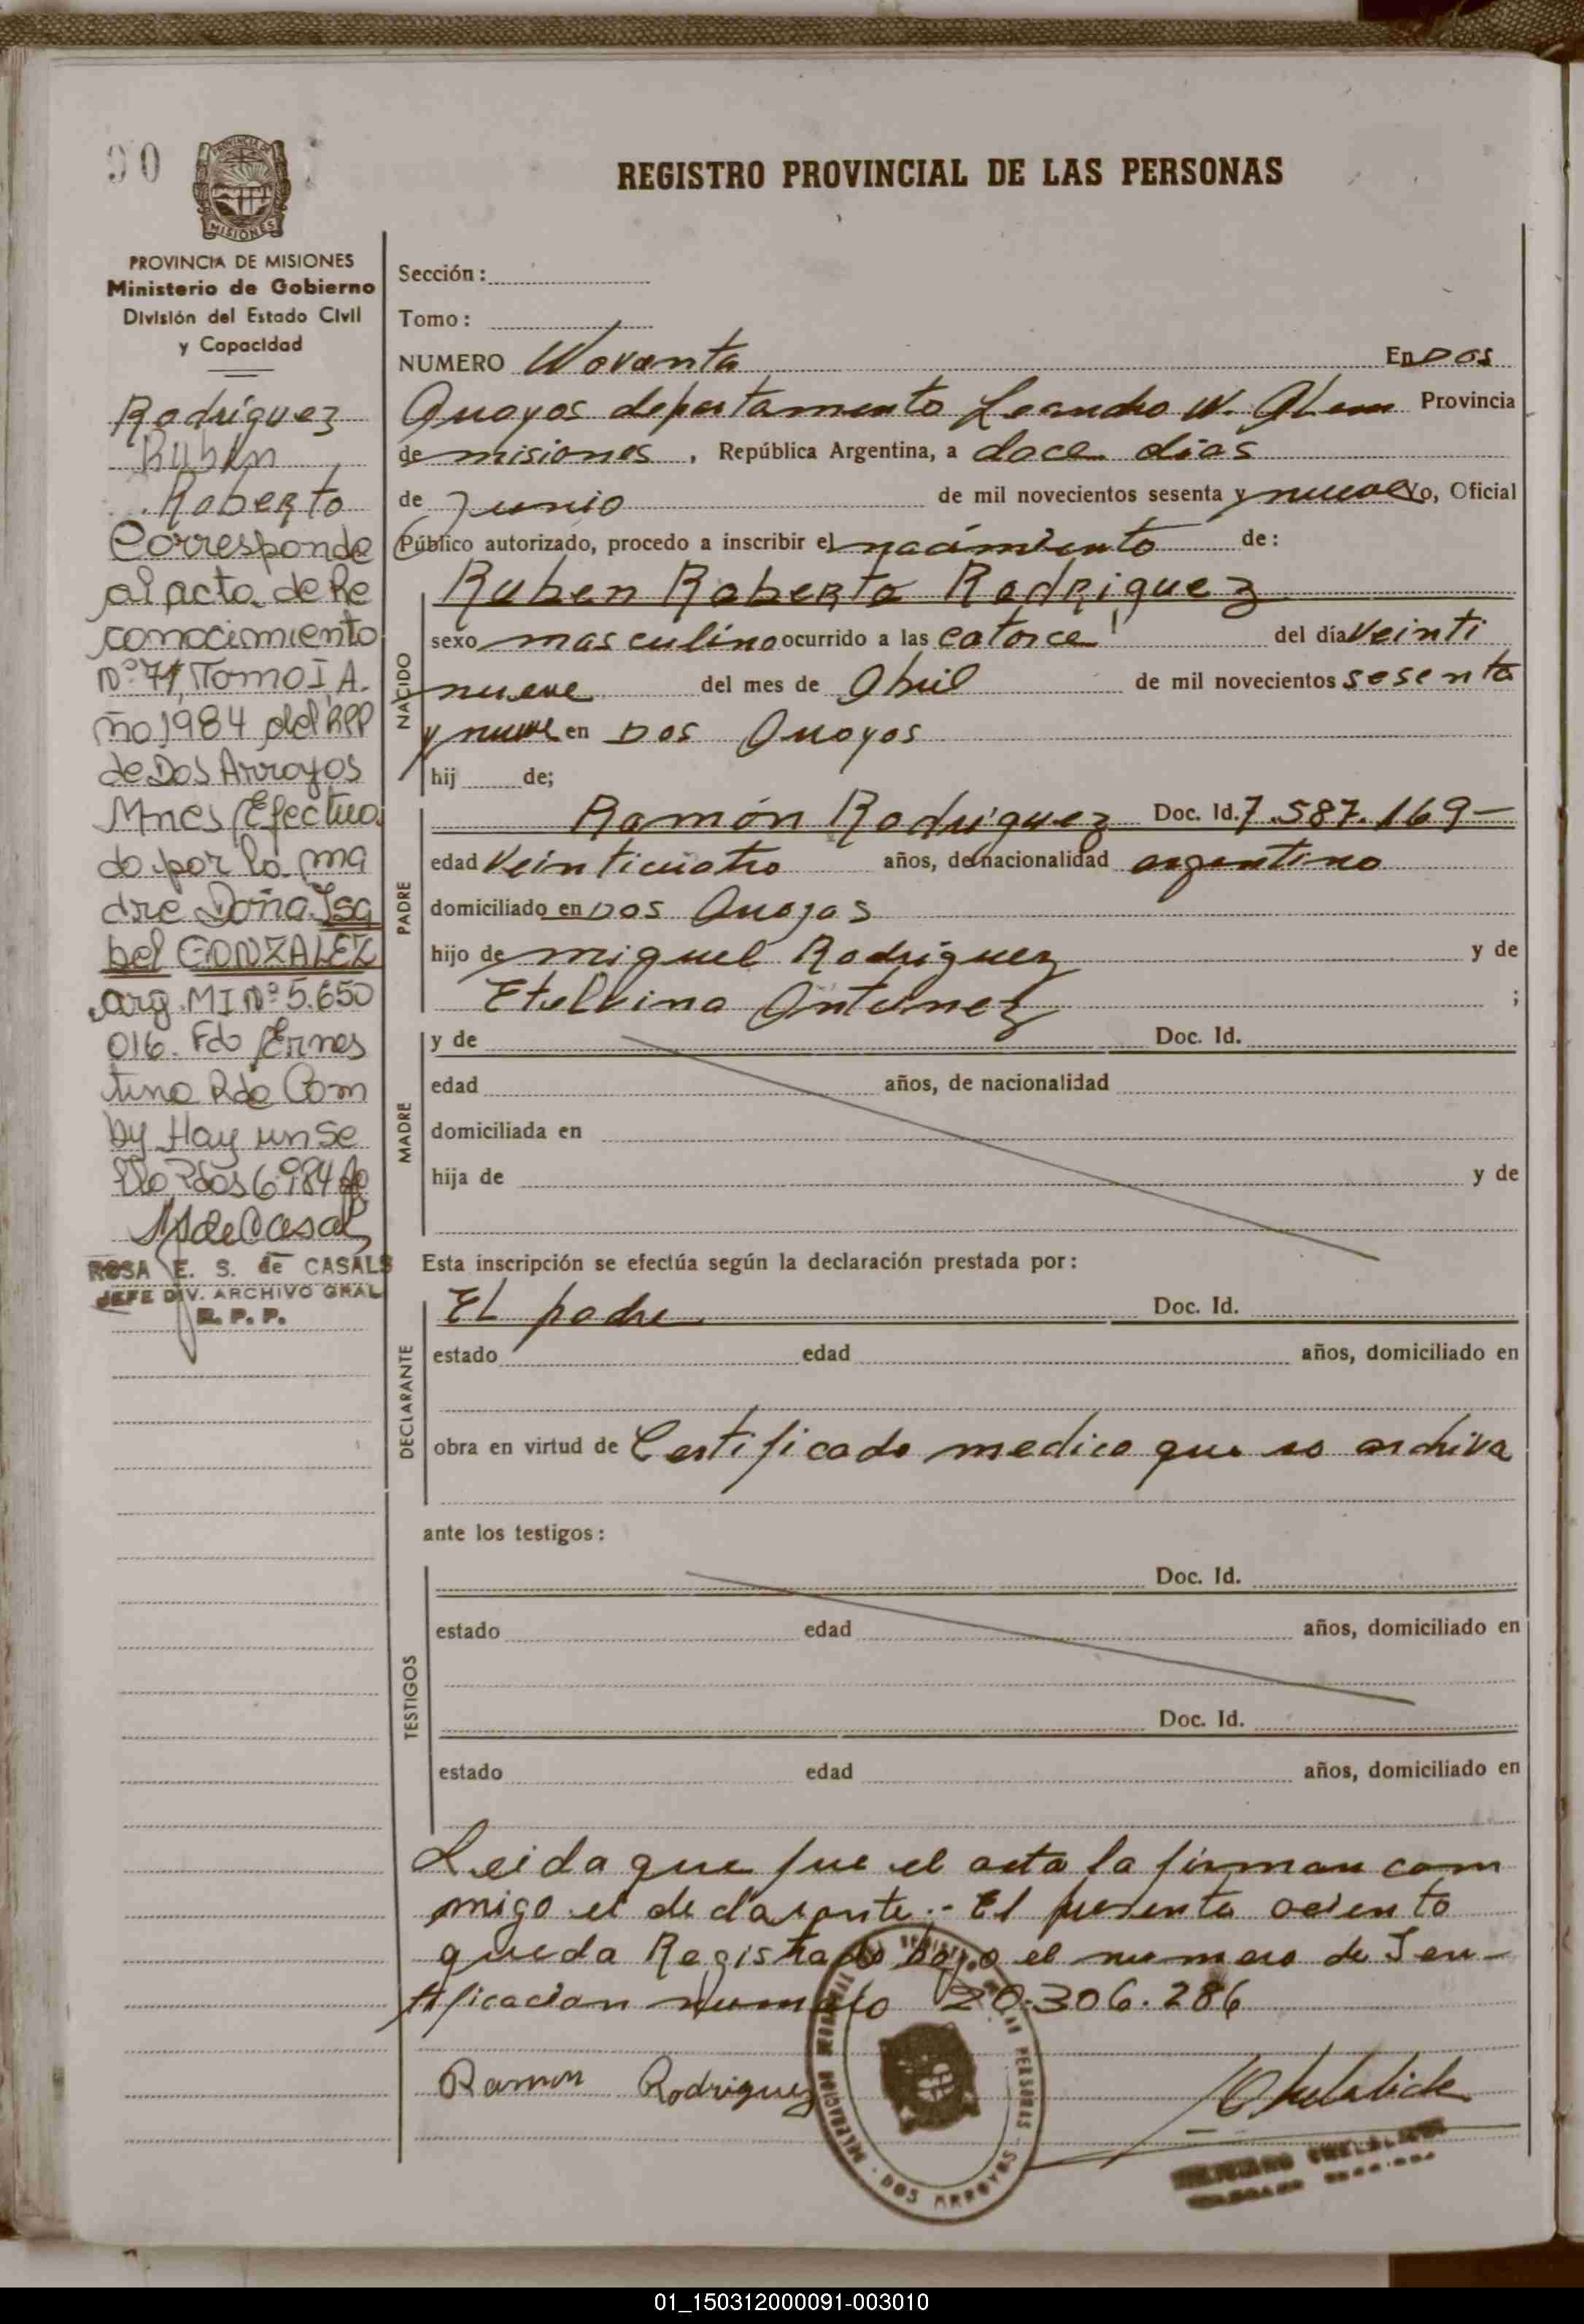 90
PROVINCIA DE MISIONES
Ministerio de Gobierno
División del Estado Civil
y Capacidad
Rodríguez
Rubén
Roberto
Corresponde
al acta de Re
conocimiento
Nº 71, Tomo I A.
ño 1984 del RPP
de Dos Arroyos
Mnes Efectua
do por la ma
dre Doña Isa
bel GONZALEZ
arg. MI Nº 5.650
016. Fdo Ernes
tino Rdo Com
by Hay un Se
llo Pdos 6 984
ROSA E. S. de CASALS
JEFE DIV. ARCHIVO GRAL
R. P. P.
REGISTRO PROVINCIAL DE LAS PERSONAS
Sección:
Tomo:
NUMERO Novanta En Dos
Arroyos departamento Leandro N. Alem Provincia
de misiones, República Argentina, a doce dias
de Junio de mil novecientos sesenta y nueve Yo, Oficial
Público autorizado, procedo a inscribir el nacimiento de:
NACIDO
Ruben Roberto Rodriguez
sexo masculino ocurrido a las catorce del día Veinti
nueve del mes de Abril de mil novecientos sesenta
y nueve en Dos Arroyos
hij de;
PADRE
Ramón Rodriguez Doc. Id. 7.587.169-
edad Veinticuatro años, de nacionalidad argentino
domiciliado en Dos Arroyos
hijo de miguel Rodriguez y de
Etelvina Antunez ;
MADRE
y de Doc. Id.
edad años, de nacionalidad
domiciliada en
hija de y de
Esta inscripción se efectúa según la declaración prestada por:
DECLARANTE
El padre Doc. Id.
estado edad años, domiciliado en
obra en virtud de Certificado medico que se archiva
ante los testigos:
TESTIGOS
Doc. Id.
estado edad años, domiciliado en
Doc. Id.
estado edad años, domiciliado en
Leida que fue el acta la firman com
migo el declarante.- El presente aciento
queda Registrado bajo el numero de Ien-
tificacion numero 20.306.286
Ramon Rodriguez
DELEGACION DOS ARROYOS PERSONAS
01_150312000091-003010